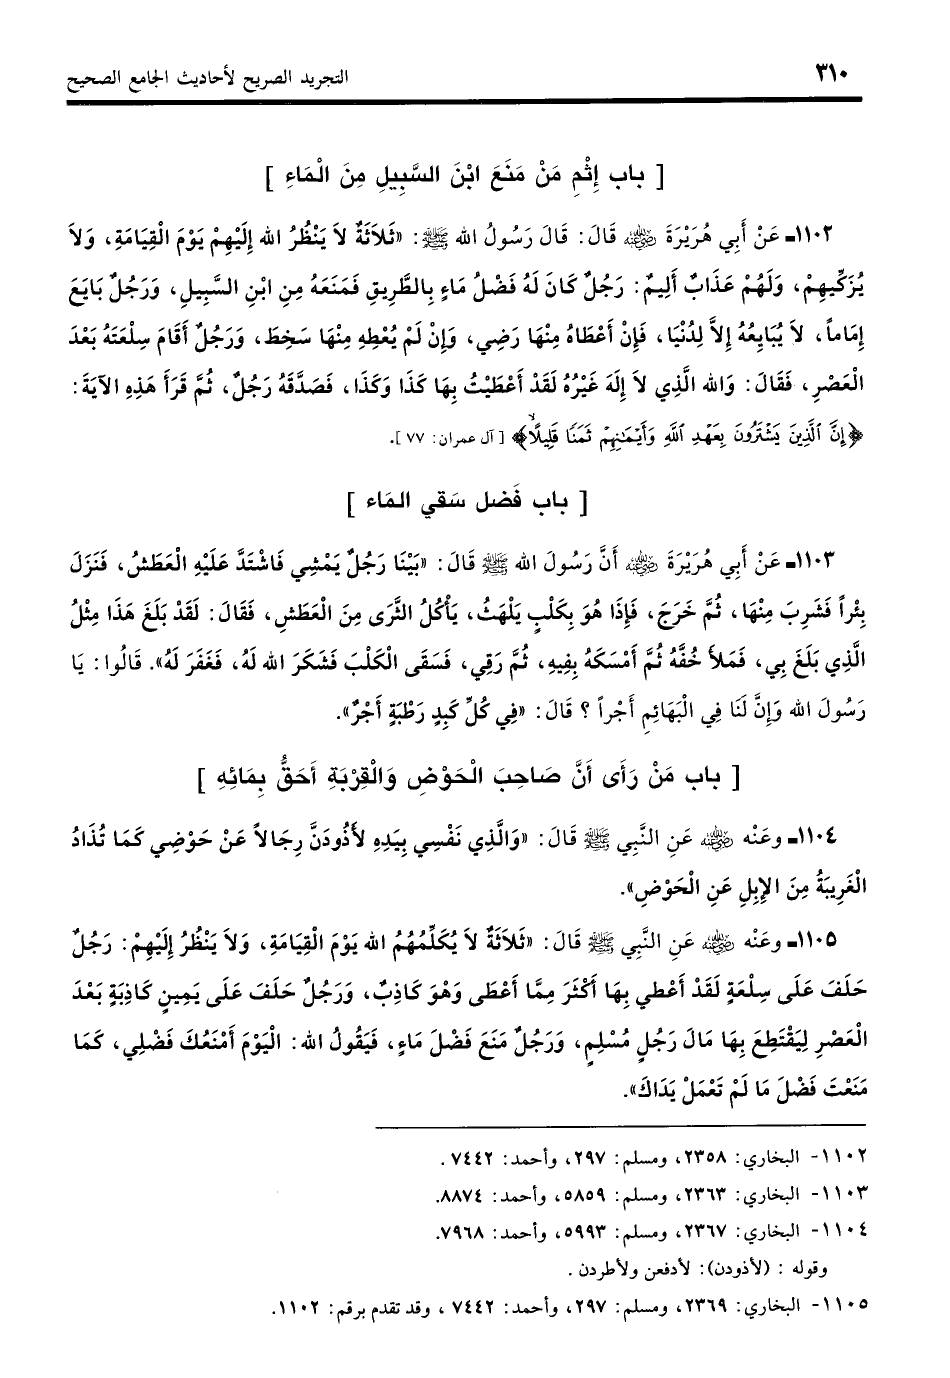 ٣١٠
التجريد الصريح لأحاديث الجامع الصحيح
[ باب إِثْمِ مَنْ مَنَعَ ابْنَ السَّبِيلِ مِنَ الْمَاءِ ]
١١٠٢ـ عَنْ أَبِي هُرَيْرَةَ رضي الله عنه قَالَ: قَالَ رَسُولُ الله ﷺ: «ثَلاَثَةٌ لاَ يَنْظُرُ الله إِلَيْهِمْ يَوْمَ الْقِيَامَةِ، وَلاَ
يُزَكِّيهِمْ، وَلَهُمْ عَذَابٌ أَلِيمٌ: رَجُلٌ كَانَ لَهُ فَضْلُ مَاءٍ بِالطَّرِيقِ فَمَنَعَهُ مِنِ ابْنِ السَّبِيلِ، وَرَجُلٌ بَايَعَ
إِمَاماً، لاَ يُبَايِعُهُ إِلاَّ لِدُنْيَا، فَإِنْ أَعْطَاهُ مِنْهَا رَضِي، وَإِنْ لَمْ يُعْطِهِ مِنْهَا سَخِطَ، وَرَجُلٌ أَقَامَ سِلْعَتَهُ بَعْدَ
الْعَصْرِ، فَقَالَ: وَالله الَّذِي لاَ إِلَهَ غَيْرُهُ لَقَدْ أَعْطَيْتُ بِهَا كَذَا وَكَذَا، فَصَدَّقَهُ رَجُلٌ، ثُمَّ قَرَأَ هَذِهِ الآيَةَ:
﴿إِنَّ ٱلَّذِينَ يَشْتَرُونَ بِعَهْدِ ٱللَّهِ وَأَيْمَـٰنِهِمْ ثَمَنًا قَلِيلًاۙ﴾ [ آل عمران: ٧٧ ].
[ باب فَضل سَقي المَاء ]
١١٠٣ـ عَنْ أَبِي هُرَيْرَةَ رضي الله عنه أَنَّ رَسُولَ الله ﷺ قَالَ: «بَيْنَا رَجُلٌ يَمْشِي فَاشْتَدَّ عَلَيْهِ الْعَطَشُ، فَنَزَلَ
بِئْراً فَشَرِبَ مِنْهَا، ثُمَّ خَرَجَ، فَإِذَا هُوَ بِكَلْبٍ يَلْهَثُ، يَأْكُلُ الثَّرَى مِنَ الْعَطَشِ، فَقَالَ: لَقَدْ بَلَغَ هَذَا مِثْلُ
الَّذِي بَلَغَ بِي، فَمَلأَ خُفَّهُ ثُمَّ أَمْسَكَهُ بِفِيهِ، ثُمَّ رَقِي، فَسَقَى الْكَلْبَ فَشَكَرَ الله لَهُ، فَغَفَرَ لَهُ». قَالُوا: يَا
رَسُولَ الله وَإِنَّ لَنَا فِي الْبَهَائِمِ أَجْراً ؟ قَالَ: «فِي كُلِّ كَبِدٍ رَطْبَةٍ أَجْرٌ».
[ باب مَنْ رَأَى أَنَّ صَاحِبَ الْحَوْضِ وَالْقِرْبَةِ أَحَقُّ بِمَائِهِ ]
١١٠٤ـ وعَنْه رضي الله عنه عَنِ النَّبِي ﷺ قَالَ: «وَالَّذِي نَفْسِي بِيَدِهِ لأَذُودَنَّ رِجَالاً عَنْ حَوْضِي كَمَا تُذَادُ
الْغَرِيبَةُ مِنَ الإِبِلِ عَنِ الْحَوْضِ».
١١٠٥ـ وعَنْه رضي الله عنه عَنِ النَّبِي ﷺ قَالَ: «ثَلاَثَةٌ لاَ يُكَلِّمُهُمُ الله يَوْمَ الْقِيَامَةِ، وَلاَ يَنْظُرُ إِلَيْهِمْ: رَجُلٌ
حَلَفَ عَلَى سِلْعَةٍ لَقَدْ أَعْطي بِهَا أَكْثَرَ مِمَّا أَعْطَى وَهْوَ كَاذِبٌ، وَرَجُلٌ حَلَفَ عَلَى يَمِينٍ كَاذِبَةٍ بَعْدَ
الْعَصْرِ لِيَقْتَطِعَ بِهَا مَالَ رَجُلٍ مُسْلِمٍ، وَرَجُلٌ مَنَعَ فَضْلَ مَاءٍ، فَيَقُولُ الله: الْيَوْمَ أَمْنَعُكَ فَضْلِي، كَمَا
مَنَعْتَ فَضْلَ مَا لَمْ تَعْمَلْ يَدَاكَ».
١١٠٢- البخاري: ٢٣٥٨، ومسلم: ٢٩٧، وأحمد: ٧٤٤٢ .
١١٠٣- البخاري: ٢٣٦٣، ومسلم: ٥٨٥٩، وأحمد: ٨٨٧٤.
١١٠٤- البخاري: ٢٣٦٧، ومسلم: ٥٩٩٣، وأحمد: ٧٩٦٨.
وقوله : (لأذودن): لأدفعن ولأطردن .
١١٠٥- البخاري: ٢٣٦٩، ومسلم: ٢٩٧، وأحمد: ٧٤٤٢ ، وقد تقدم برقم: ١١٠٢.